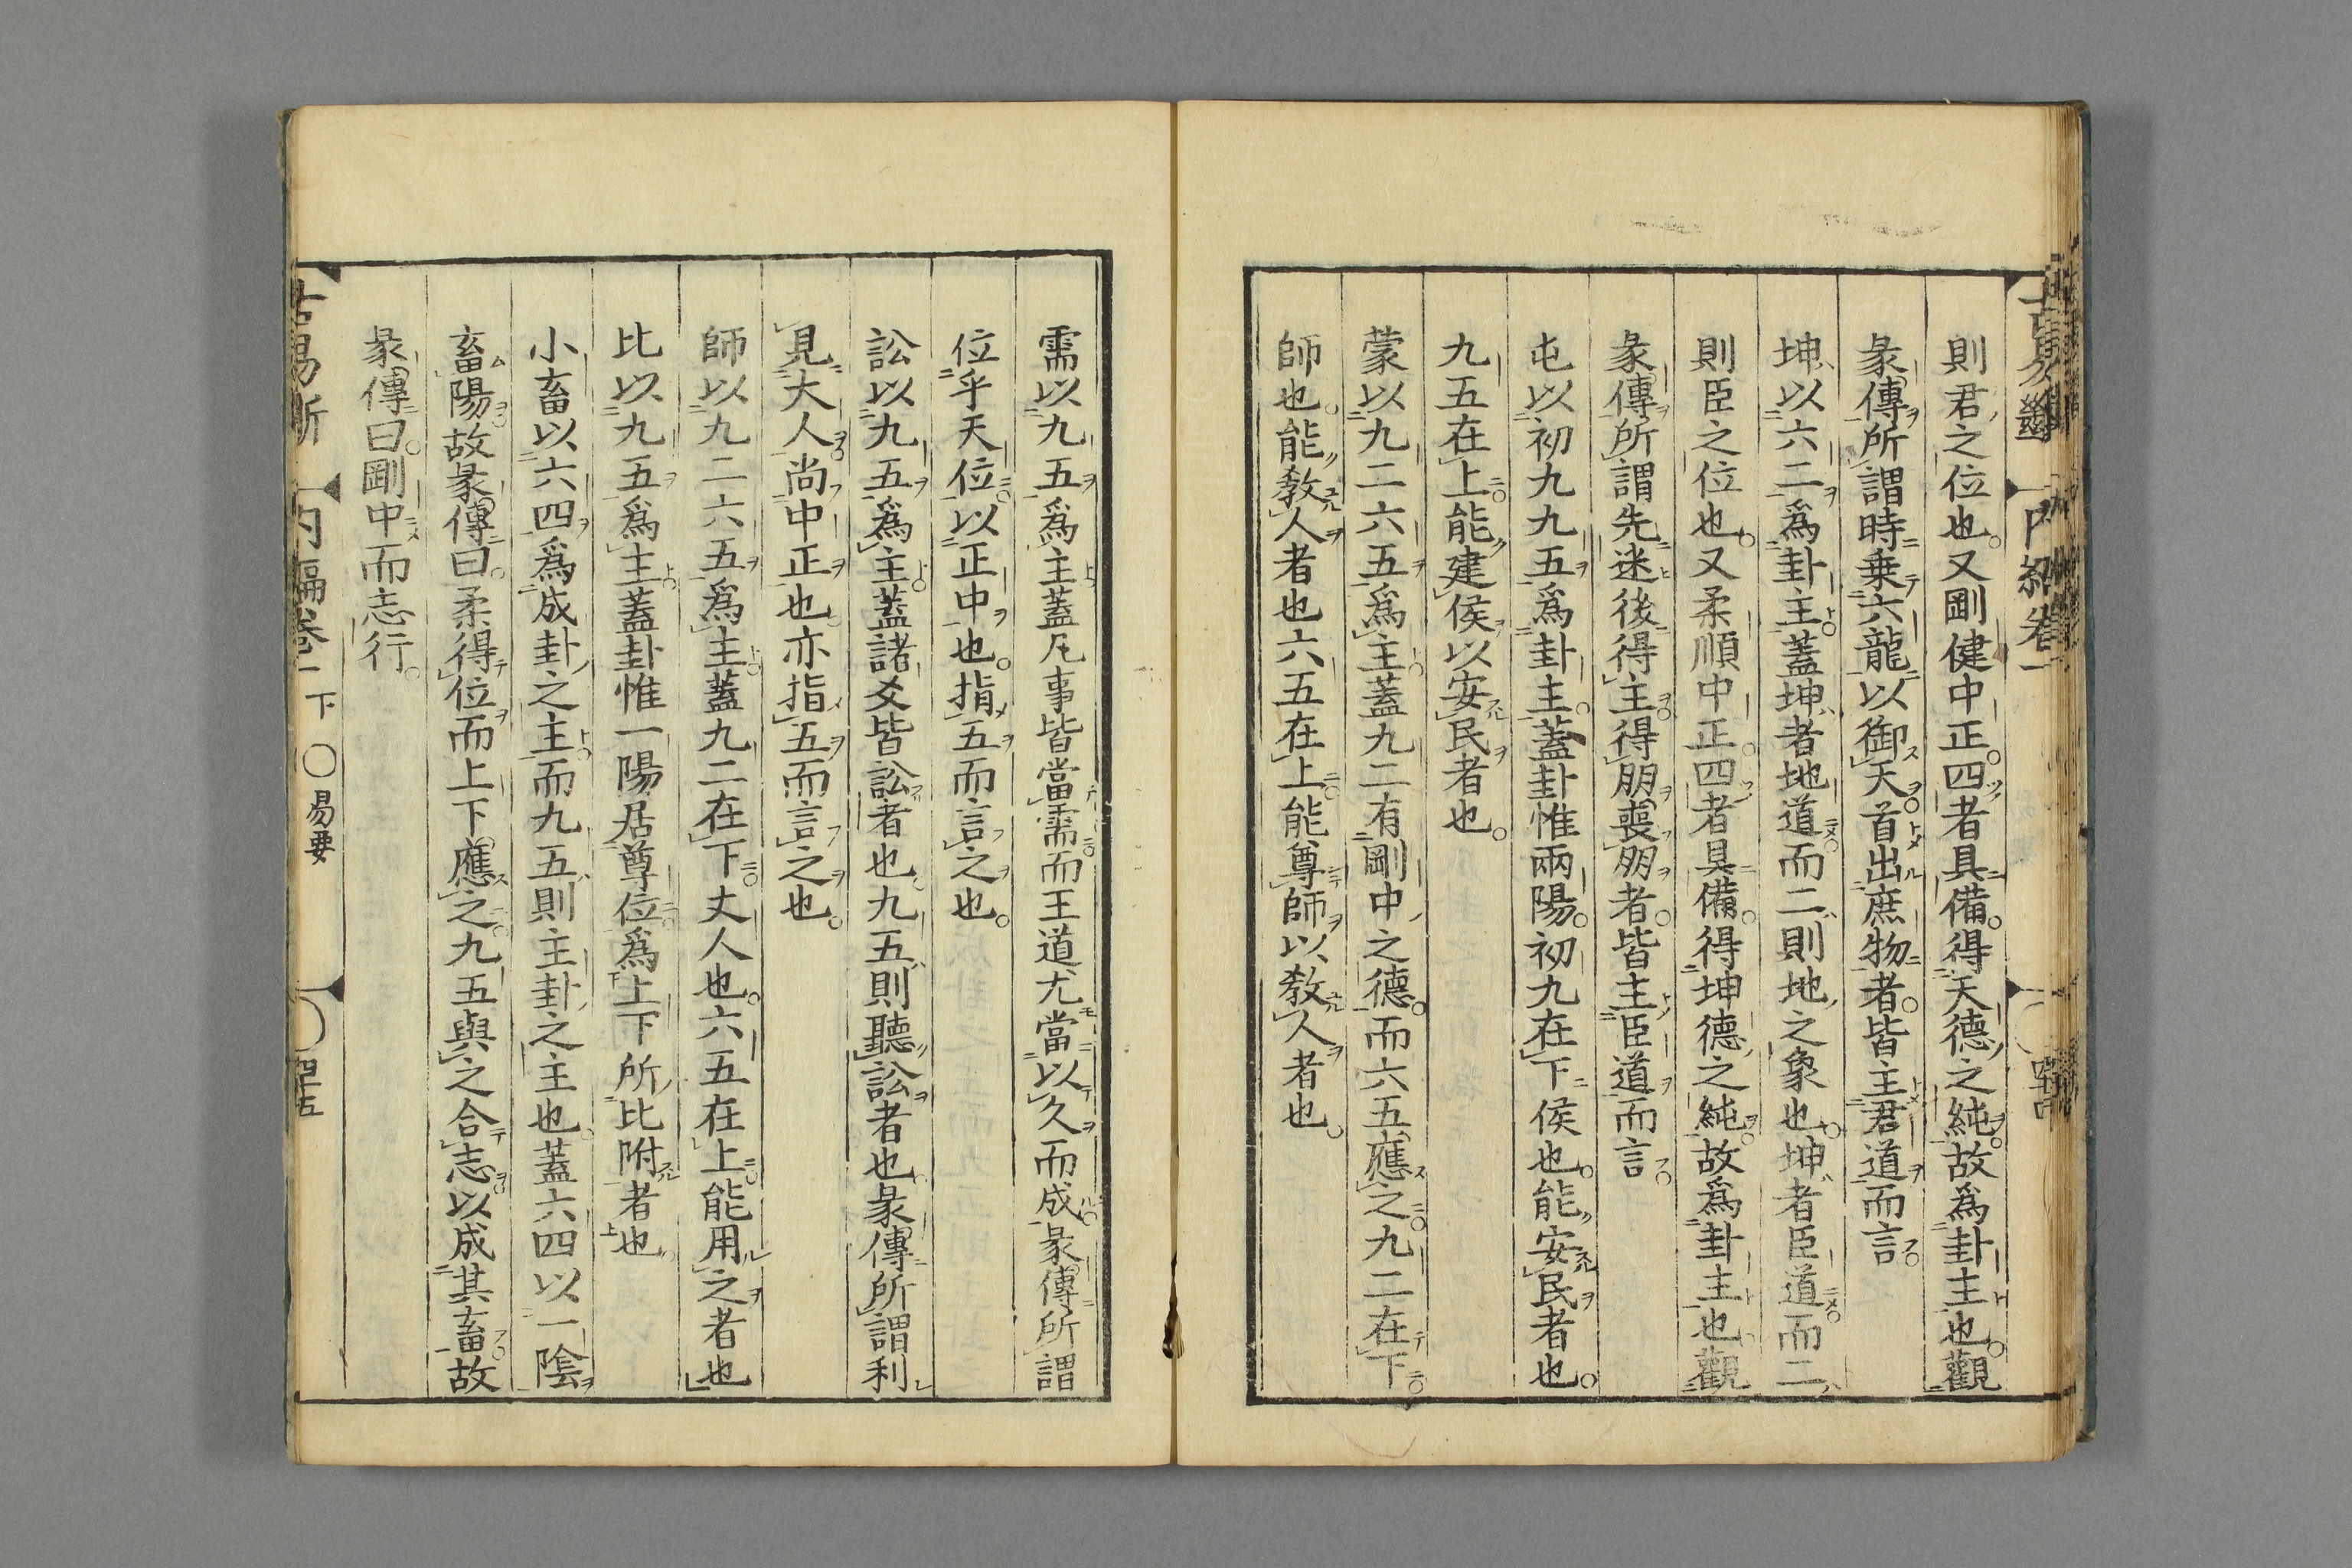 則君之位也又剛健中正四者具備得天德之純故爲卦主也觀
彖傳所謂時乗六龍以御天首出庶物者皆主君道而言
坤以六二爲卦主蓋坤者地道而二則地之象也坤者臣道而二
則臣之位也又柔順中正四者具備得坤德之純故爲卦主也觀
彖傳所謂先迷後得主得朋喪朋者皆主臣道而言
屯以初九九五爲卦主蓋卦惟兩陽初九在下侯也能安民者也
九五在上能建侯以安民者也
蒙以九二六五爲主蓋九二有剛中之德而六五應之九二在下
師也能教人者也六五在上能尊師以教人者也
需以九五爲主蓋凡事皆當需而王道尤當以久而成彖傳所謂
位乎天位以正中也指五而言之也
訟以九五爲主蓋諸爻皆訟者也九五則聽訟者也彖傳所謂利
見大人尚中正也亦指五而言之也
師以九二六五爲主蓋九二在下丈人也六五在上能用之者也
比以九五爲主蓋卦惟一陽居尊位爲上下所比附者也
小畜以六四爲成卦之主而九五則主卦之主也蓋六四以一陰
畜陽故彖傳曰柔得位而上下應之九五與之合志以成其畜故
彖傳曰剛中而志行
古易斷 内編卷一下 ○易要 四十五